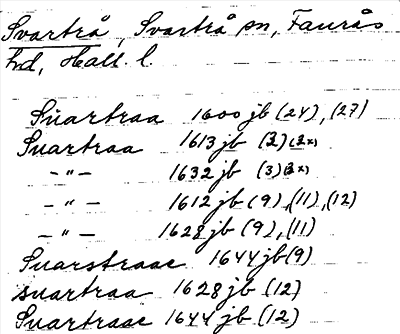 Svartrå, Svartrå sn, Faurås
hd, Hall. l.
Suartraa 1600 jb (24), (27)
Suartraa 1613 jb (2) (2x)
-"- 1632 jb (3) (2x)
-"- 1612 jb (9), (11), (12)
-"- 1628 jb (9), (11)
Suarstraae 1644 jb (9)
suartraa 1628 jb (12)
Suartraae 1644 jb (12)